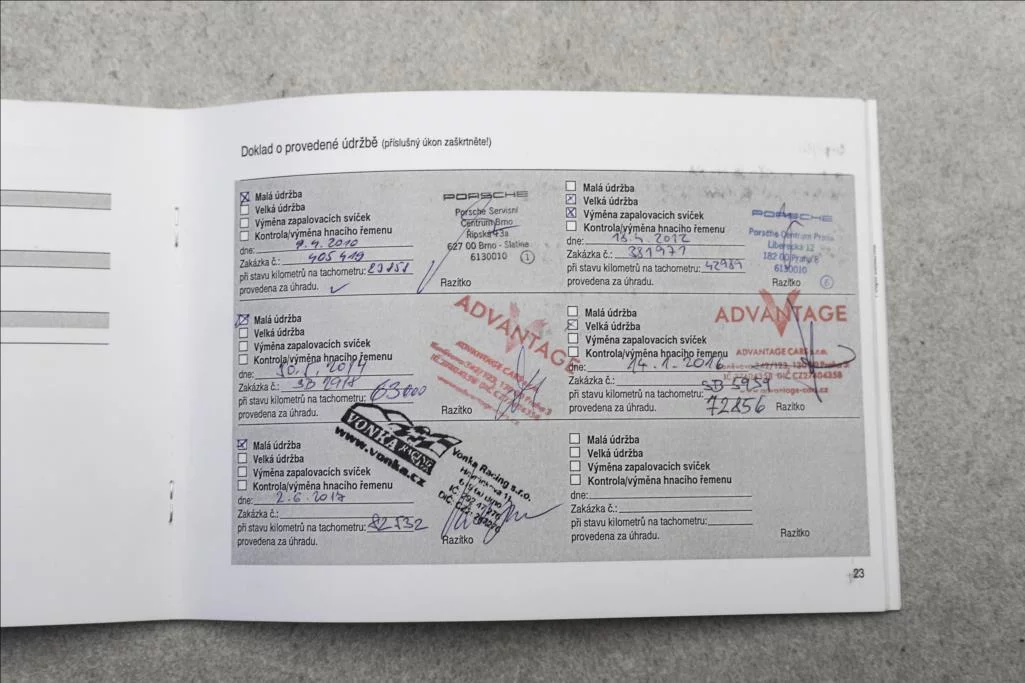 Doklad o provedené údržbě (příslušný úkon zaškrtněte!)
Malá údržba
Velká údržba
Výměna zapalovacích svíček
Kontrola/výměna hnacího řemenu
dne: 9.4.2010
Zakázka č.: 405419
při stavu kilometrů na tachometru: 23151
provedena za úhradu.
PORSCHE
Porsche Servisní
Centrum Brno
Řipská 43a
627 00 Brno - Slatina
6130010 1
Razítko
Malá údržba
Velká údržba
Výměna zapalovacích svíček
Kontrola/výměna hnacího řemenu
dne: 13.4.2012
Zakázka č.: 331971
při stavu kilometrů na tachometru: 42989
provedena za úhradu.
PORSCHE
Porsche Centrum Praha
Liberecká 12
182 00 Praha 8
6130010
Razítko 6
Malá údržba
Velká údržba
Výměna zapalovacích svíček
Kontrola/výměna hnacího řemenu
dne: 10.1.2014
Zakázka č.: SB 1918
při stavu kilometrů na tachometru: 63000
provedena za úhradu.
ADVANTAGE
ADVANTAGE CARS s.r.o.
Razítko
Malá údržba
Velká údržba
Výměna zapalovacích svíček
Kontrola/výměna hnacího řemenu
dne: 14.1.2016
Zakázka č.: SB 5959
při stavu kilometrů na tachometru: 72856
provedena za úhradu.
ADVANTAGE
ADVANTAGE CARS s.r.o.
www.advantage-cars.cz
Razítko
Malá údržba
Velká údržba
Výměna zapalovacích svíček
Kontrola/výměna hnacího řemenu
dne: 2.6.2017
Zakázka č.:
při stavu kilometrů na tachometru: 82532
provedena za úhradu.
VONKA RACING
www.vonka.cz
Vonka Racing s.r.o.
Razítko
Malá údržba
Velká údržba
Výměna zapalovacích svíček
Kontrola/výměna hnacího řemenu
dne:
Zakázka č.:
při stavu kilometrů na tachometru:
provedena za úhradu.
Razítko
23